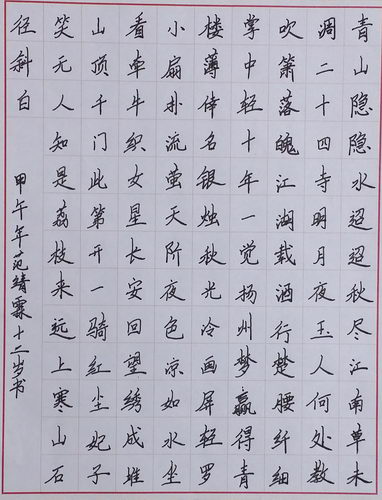 青山隐隐水迢迢秋尽江南草未
凋二十四寺明月夜玉人何处教
吹箫落魄江湖载酒行楚腰纤细
掌中轻十年一觉扬州梦赢得青
楼薄倖名银烛秋光冷画屏轻罗
小扇扑流萤天阶夜色凉如水坐
看牵牛织女星长安回望绣成堆
山顶千门此第开一骑红尘妃子
笑无人知是荔枝来远上寒山石
径斜白
甲午年范靖霖十二岁书